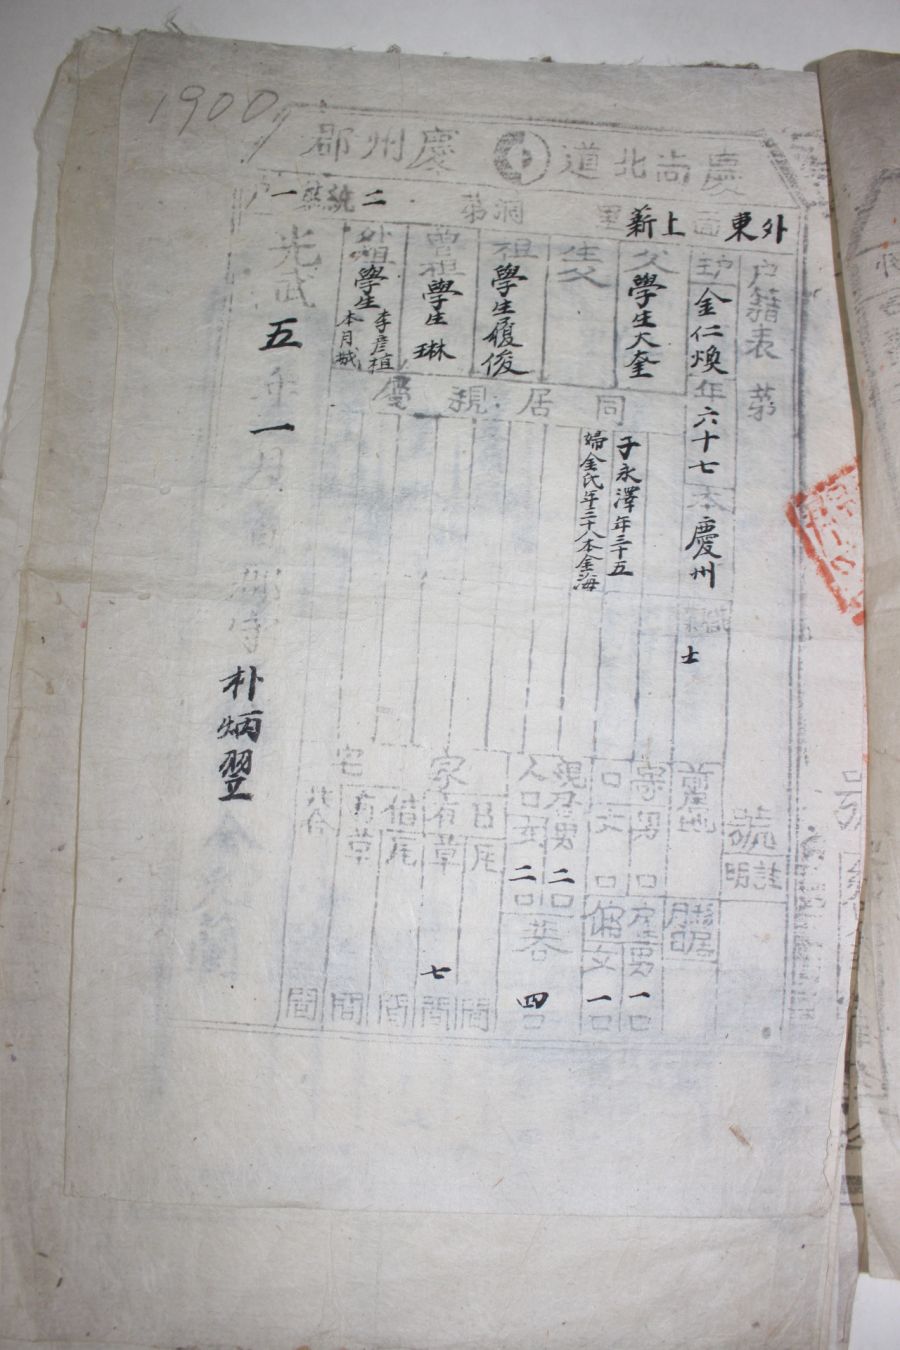 1900
慶尚北道 慶州郡
外東面 上薪里 洞第 二統 一戶
户籍表 第 號
户主 金仁煥 年 六十七 本 慶州 職 士
父 學生大奎
生父
祖 學生履俊
曾祖 學生琳
外祖 學生李彦植本月城
同居親屬
子永澤年三十五
婦金氏年三十八本金海
註明
寄男 口
口女 口
雇男 一口
傭女 一口
現存男 二口
人口女 二口
共 四口
家宅
瓦 間
草 七間
借瓦 間
草 間
共合 間
光武 五年 一月 郡守 朴炳翌